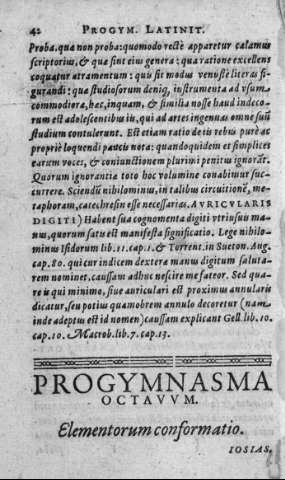 42 PROGYM. LATINIT.
Proba. qua non proba: quomodo rectè apparetur calamus
scriptorius, & quæ sint eius genera: qua ratione excellens
coquatur atramentum: quis sit modus venustè literas fi-
gurandi: quæ studiosorum deniq, instrumenta ad vsum
commodiora, hæc, inquam, & similia nosse haud indeco-
rum est adolescentibus iis, qui ad artes ingenuas omne suũ
studium contulerunt. Est etiam ratio de iis rebus purè ac
propriè loquendi paucis nota: quandoquidem et simplices
earum voces, & coniunctionem plurimi penitus ignorãt.
Quorum ignorantiæ toto hoc volumine conabimur suc-
currere. Sciendũ nihilominus, in talibus circuitionẽ, me-
taphoram, catechresin esse necessarias. AVRICVLARIS
DIGITI) Habent sua cognomenta digiti vtriusuis ma-
nus, quorum satis est manifesta significatio. Lege nihilo-
minus Isidorum lib. 11. cap. 1. & Torrent. in Sueton. Aug.
cap. 80. qui tur indicem dextera manus digitum saluta-
rem nominet, caussam adhuc nescire me fateor. Sed qua-
re is qui minimo, siue auriculari est proximus annularis
dicatur, seu potius quamobrem annulo decoretur (nam
inde adeptus est id nomen) caussam explicant Gell. lib. 10.
cap. 10. Macrob. lib. 7. cap. 13.
PROGYMNASMA
OCTAVVM.
Elementorum conformatio.
IOSIAS.